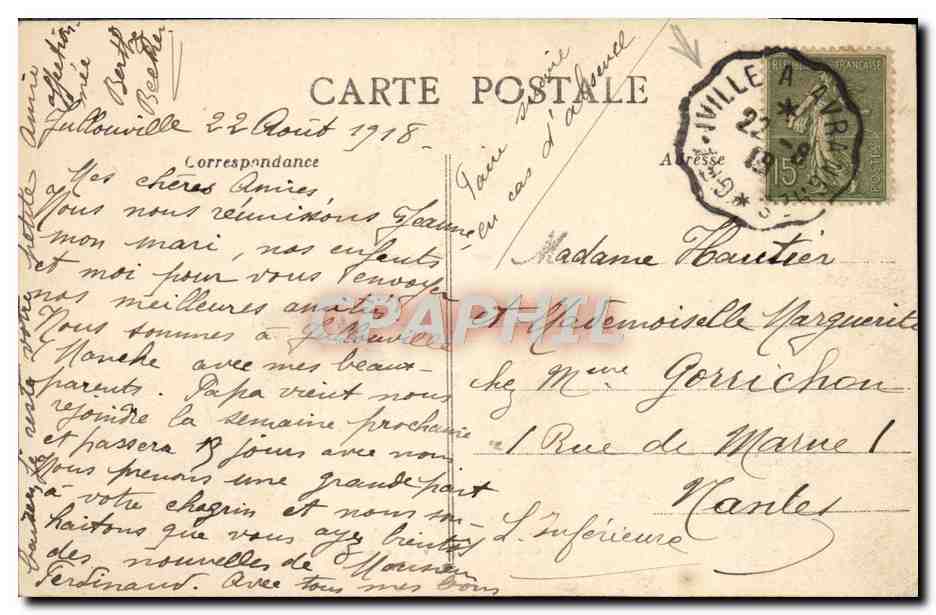 CARTE POSTALE
Correspondance
Adresse
Jullouville 22 Août 1918.
Mes chères Amies
Nous nous réunissons Jeanne,
mon mari, nos enfants
et moi pour vous envoyer
nos meilleures amitiés
Nous sommes à Jullouville
Manche avec mes beaux-
parents. Papa vient nous
rejoindre la semaine prochaine
et passera 15 jours avec nous
Nous prenons une grande part
à votre chagrin et nous sou-
haitons que vous ayez bientôt
des nouvelles de Monsieur
Ferdinand. Avec tous mes bons
baisers je reste votre petite
amie
affection
née
Berthe
Becker
Faire suivre
en cas d'absence
Madame Hautier
et Mademoiselle Marguerite
chez Mme Gorrichon
1 Rue de Marne 1
Nantes
L. Inférieure
VILLE A AVRANCHES
22 -8
18
REPUBLIQUE FRANÇAISE
15
POSTES
CPAPHIL